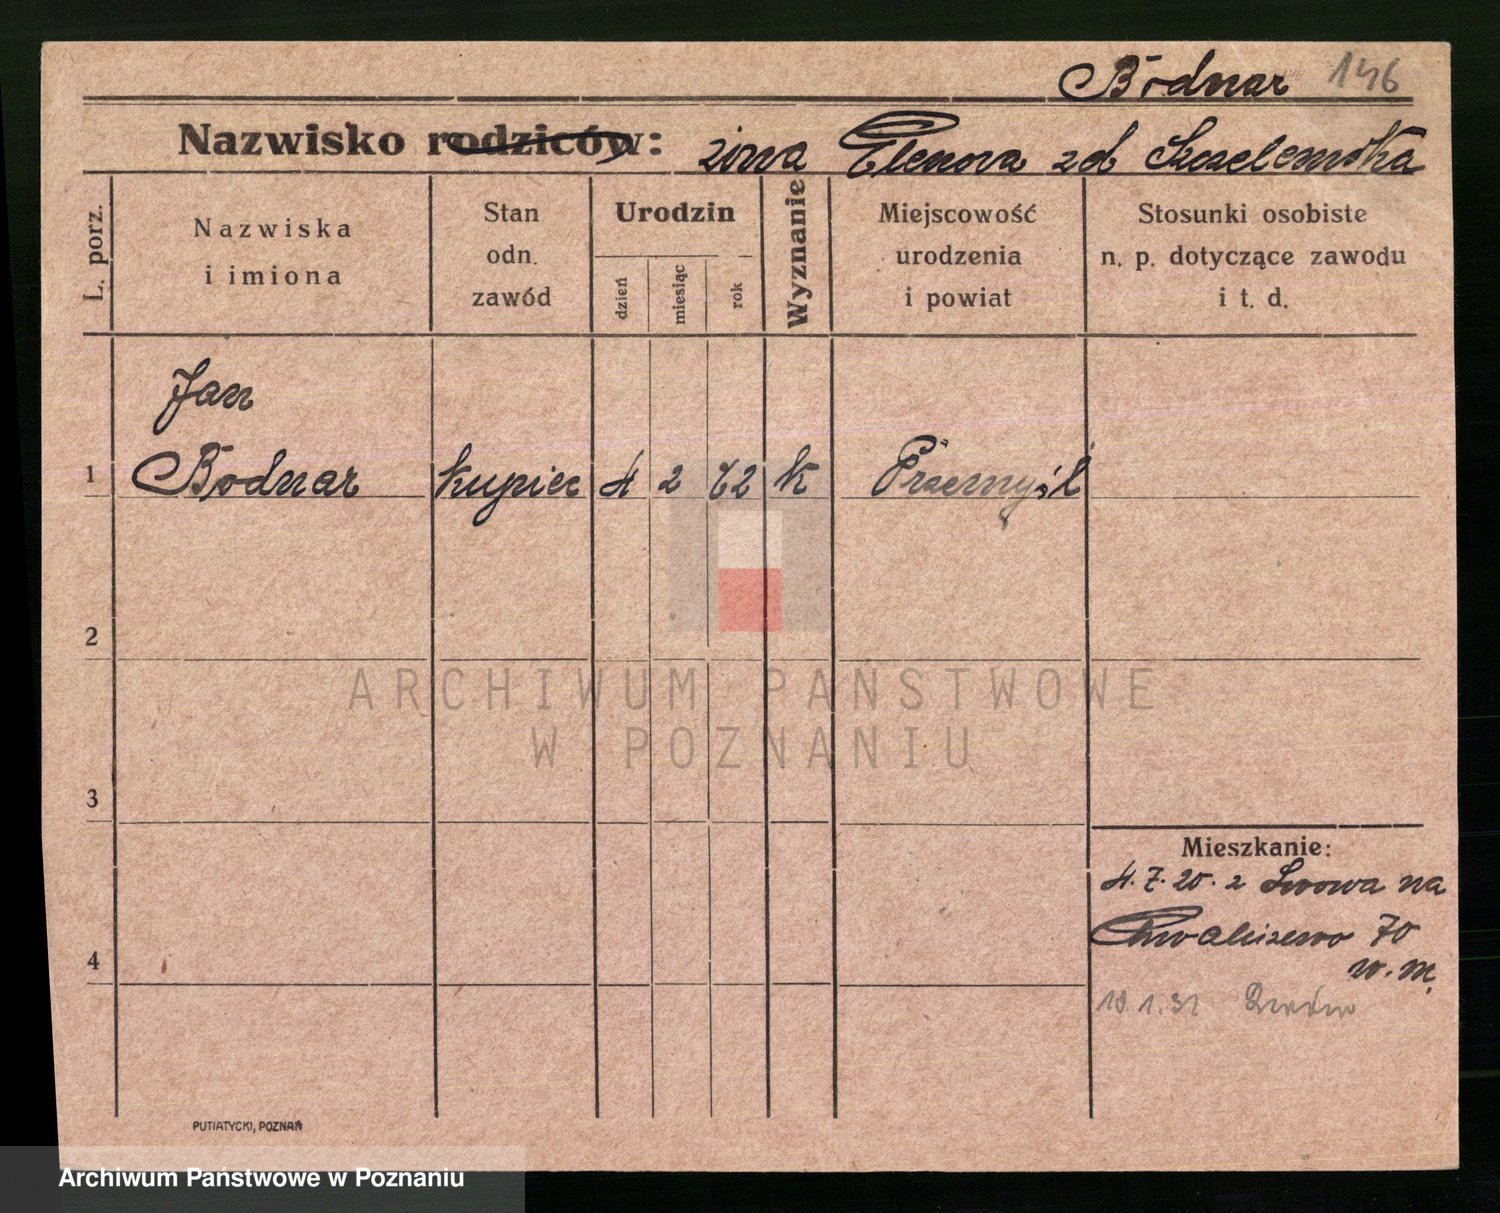 Bodnar 146
Nazwisko rodziców: żona Elenora zd
L. porz.
Nazwiska
i imiona
Stan
odn.
zawód
Urodzin
dzień
miesiąc
rok
Wyznanie
Miejscowość
urodzenia
i powiat
Stosunki osobiste
n. p. dotyczące zawodu
i t. d.
Jan
1 Bodnar kupiec 4 2 72 K Przemyśl
2
ARCHIWUM PAŃSTWOWE
W POZNANIU
3
Mieszkanie:
4. 7. 20. z Lwowa na
Chwaliszewo 70
4
w. m.
PUTIATYCKI, POZNAŃ
Archiwum Państwowe w Poznaniu